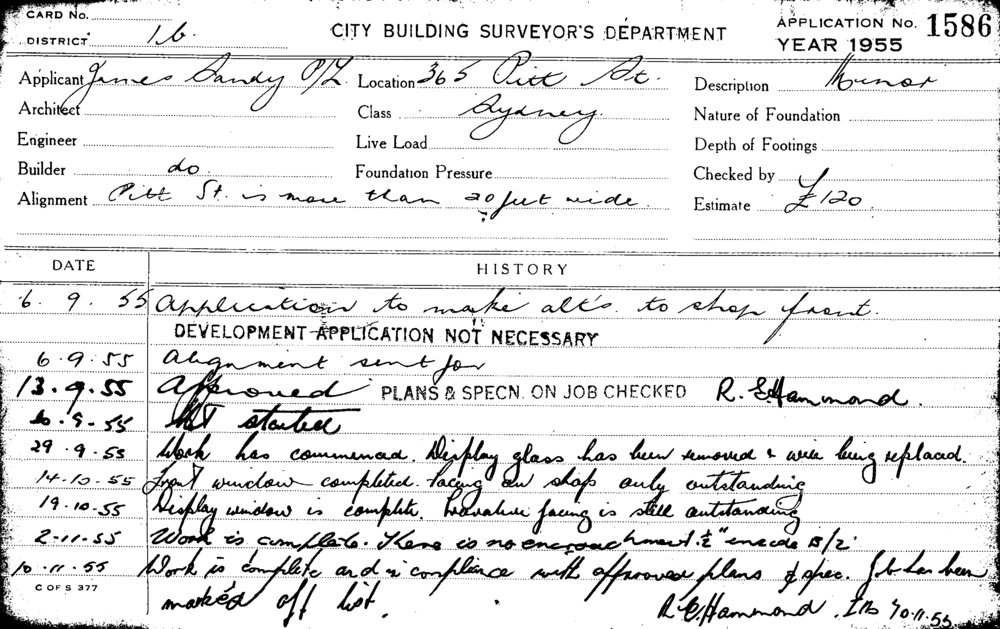 CARD No.
DISTRICT 16.
CITY BUILDING SURVEYOR'S DEPARTMENT
APPLICATION No. 1586
YEAR 1955
Applicant James Sandy P/L. Location 365 Pitt St. Description Minor
Architect Class Sydney. Nature of Foundation
Engineer Live Load Depth of Footings
Builder do. Foundation Pressure Checked by
Alignment Pitt St. is more than 20 feet wide. Estimate £120.
DATE HISTORY
6. 9. 55 Application to make alt's. to shop front.
DEVELOPMENT APPLICATION NOT NECESSARY
6.9.55 Alignment sent for
13.9.55 Approved PLANS & SPECN. ON JOB CHECKED R. E. Hammond.
.9.55 Not started
29.9.55 Work has commenced. Display glass has been removed & being replaced.
14.10.55 Front window completed. facing on shop only outstanding
19.10.55 Display window is complete. facing is still outstanding
2.11.55 Work is complete. There is no encroachment. ½" inside B/L
10.11.55 Work is complete and in compliance with approved plans & spec. Job has been
C OF S 377
marked off list. R. E. Hammond. 10.11.55